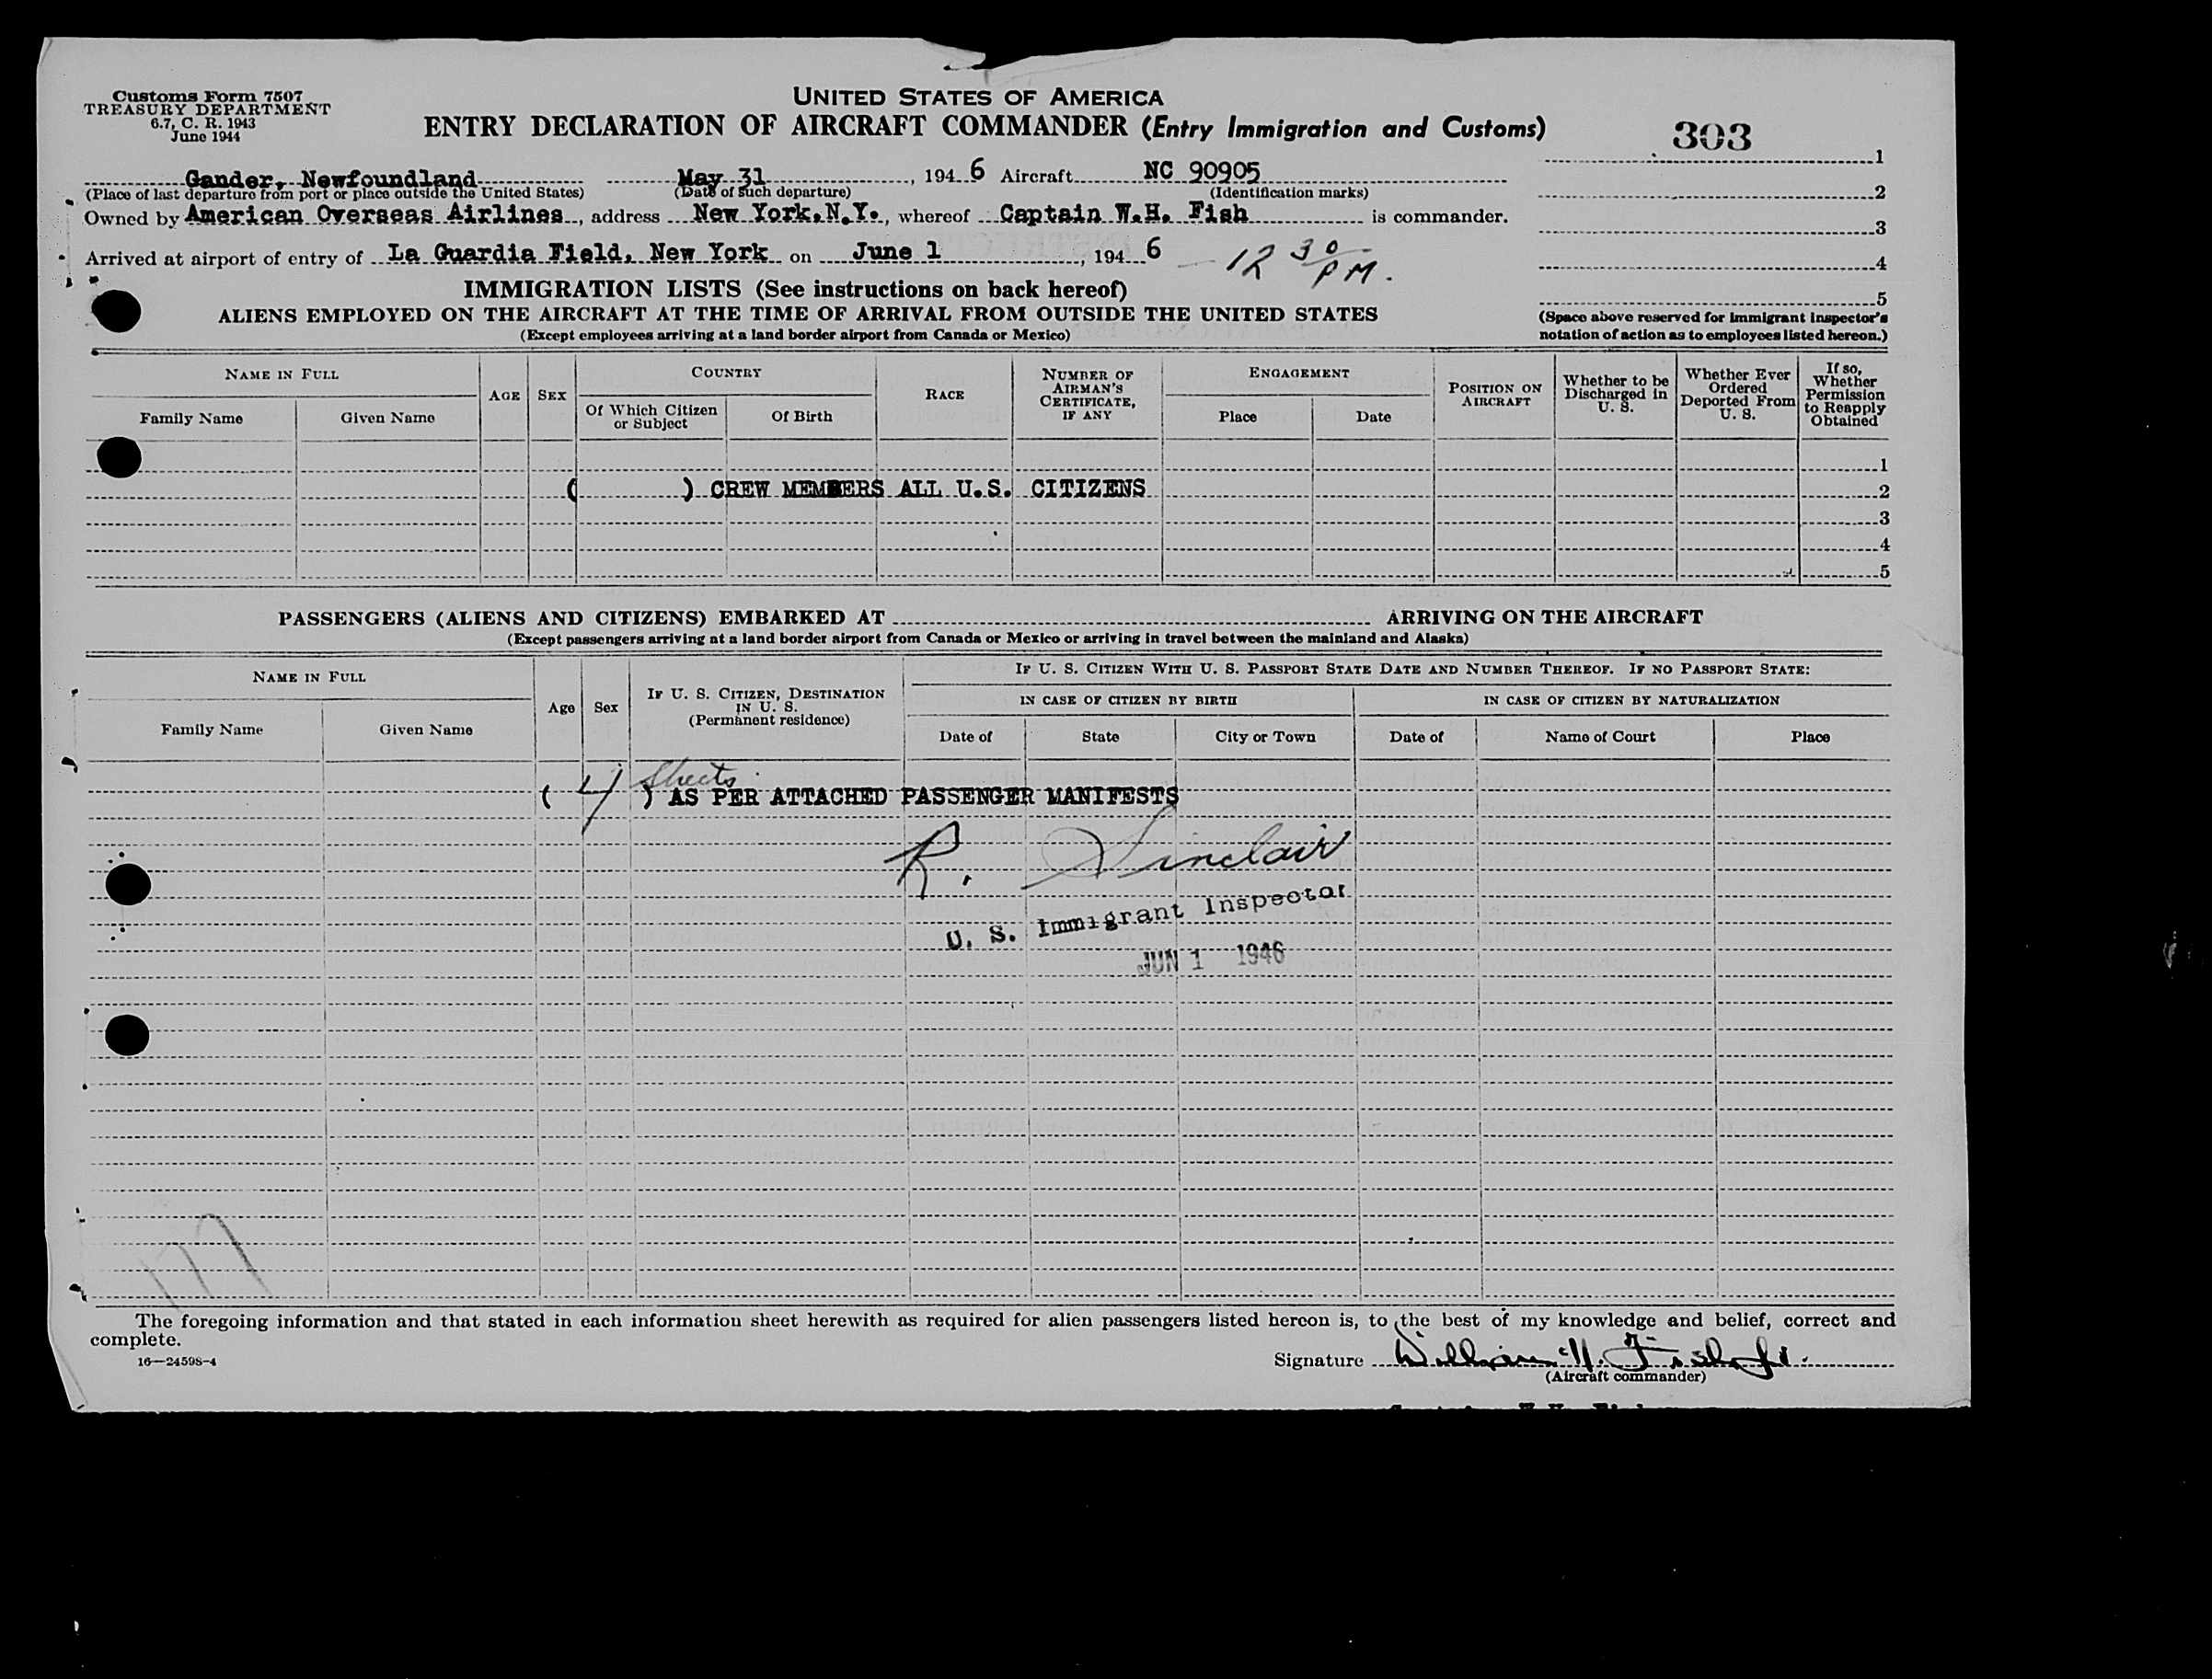 Customs Form 7507
TREASURY DEPARTMENT
6.7, C. R. 1943
June 1944
UNITED STATES OF AMERICA
ENTRY DECLARATION OF AIRCRAFT COMMANDER (Entry Immigration and Customs)
303
Gander, Newfoundland May 31, 1946 Aircraft NC 90905
(Place of last departure from port or place outside the United States) (Date of such departure) (Identification marks)
Owned by American Overseas Airlines, address New York, N.Y., whereof Captain W.H. Fish is commander.
Arrived at airport of entry of La Guardia Field, New York on June 1, 1946 - 12 30 PM.
1
2
3
4
5
(Space above reserved for immigrant inspector's
notation of action as to employees listed hereon.)
IMMIGRATION LISTS (See instructions on back hereof)
ALIENS EMPLOYED ON THE AIRCRAFT AT THE TIME OF ARRIVAL FROM OUTSIDE THE UNITED STATES
(Except employees arriving at a land border airport from Canada or Mexico)
NAME IN FULL
Family Name
Given Name
AGE
SEX
COUNTRY
Of Which Citizen
or Subject
Of Birth
RACE
NUMBER OF
AIRMAN'S
CERTIFICATE,
IF ANY
ENGAGEMENT
Place
Date
POSITION ON
AIRCRAFT
Whether to be
Discharged in
U. S.
Whether Ever
Ordered
Deported From
U. S.
If so,
Whether
Permission
to Reapply
Obtained
1
( ) CREW MEMBERS ALL U.S. CITIZENS 2
3
4
5
PASSENGERS (ALIENS AND CITIZENS) EMBARKED AT ARRIVING ON THE AIRCRAFT
(Except passengers arriving at a land border airport from Canada or Mexico or arriving in travel between the mainland and Alaska)
NAME IN FULL
Family Name
Given Name
Age
Sex
IF U. S. CITIZEN, DESTINATION
IN U. S.
(Permanent residence)
IF U. S. CITIZEN WITH U. S. PASSPORT STATE DATE AND NUMBER THEREOF. IF NO PASSPORT STATE:
IN CASE OF CITIZEN BY BIRTH
IN CASE OF CITIZEN BY NATURALIZATION
Date of
State
City or Town
Date of
Name of Court
Place
Sheets
( 4 ) AS PER ATTACHED PASSENGER MANIFESTS
R. Sinclair
U. S. Immigrant Inspector
JUN 1 1946
The foregoing information and that stated in each information sheet herewith as required for alien passengers listed hereon is, to the best of my knowledge and belief, correct and
complete.
16—24598-4
Signature William H. Fish Jr.
(Aircraft commander)